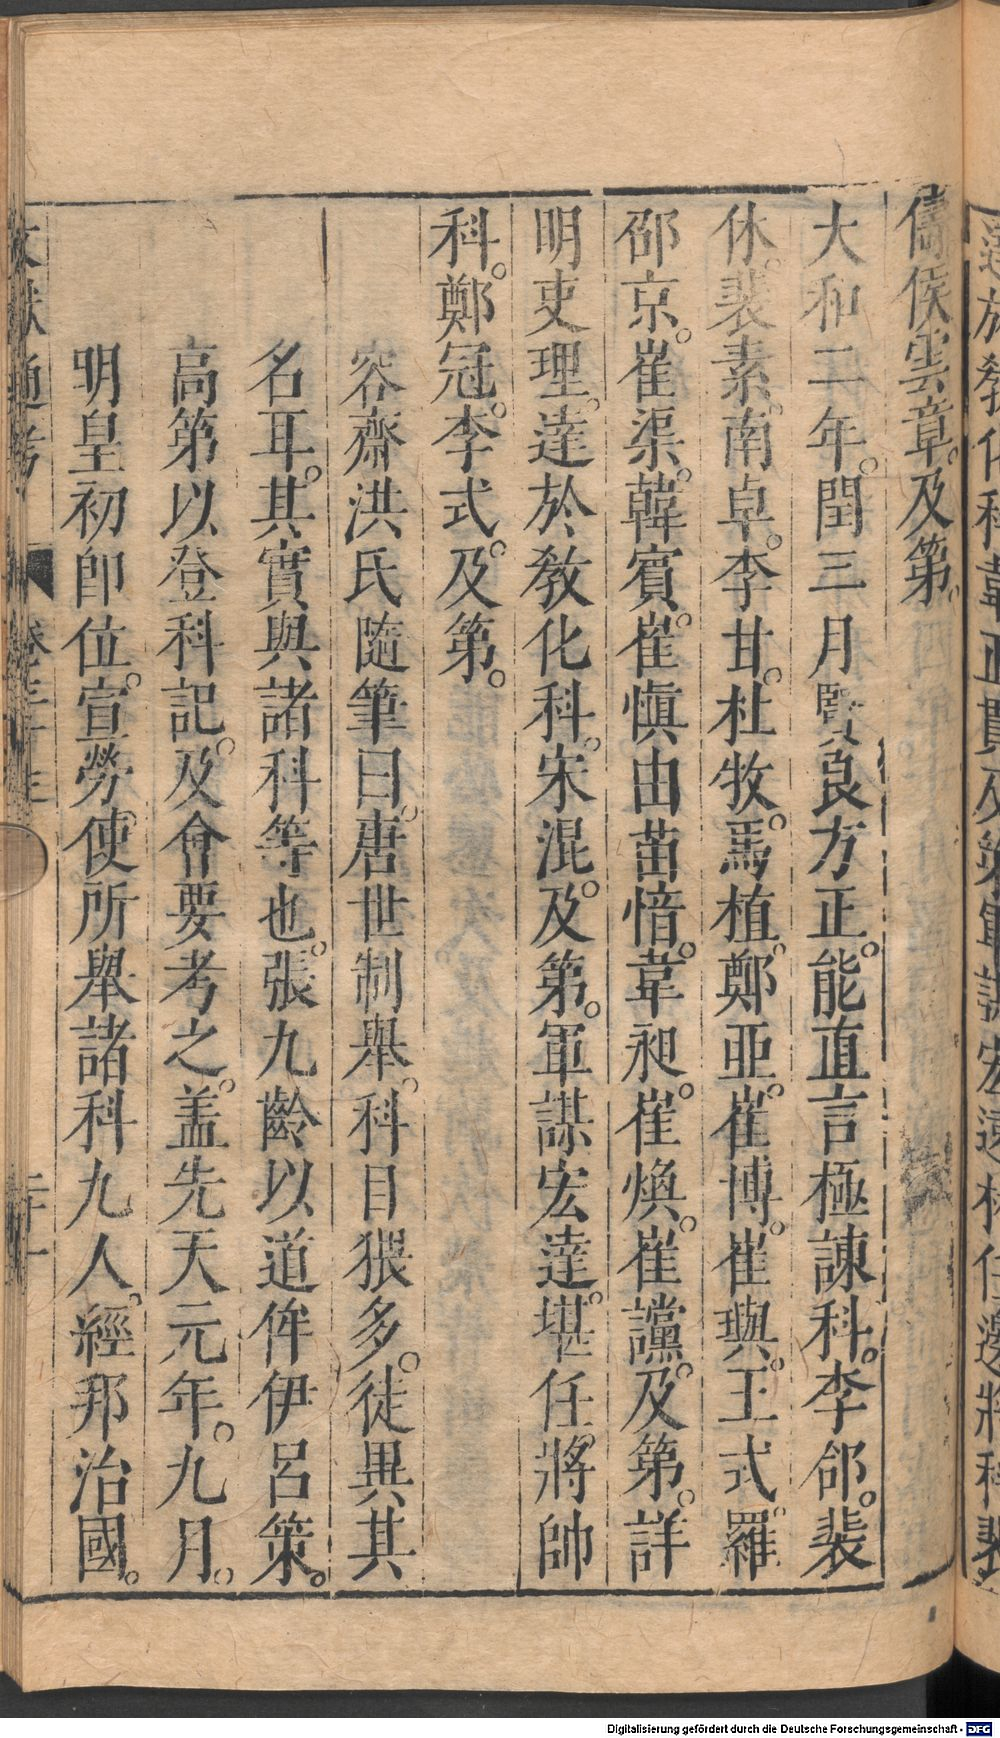 儔侯雲章及第。
大和二年。閏三月賢良方正。能直言極諫科。李郃。裴
休。裴素。南卓。李甘。杜牧。馬植。鄭亞。崔博。崔璵。王式。羅
邵京。崔渠。韓賓。崔愼由苗愔。韋昶。崔煥。崔讜。及第。詳
明吏理。達於敎化科。宋混。及第。軍謀宏達。堪任將帥
科。鄭冠。李式。及第。
容齋洪氏隨筆曰。唐世制舉。科目猥多。徒異其
名耳。其實與諸科等也。張九齡以道侔伊呂策。
高第以登科記。及會要考之。盖先天元年。九月。
明皇初卽位。宣勞使所舉諸科九人。經邦治國。
文獻通考